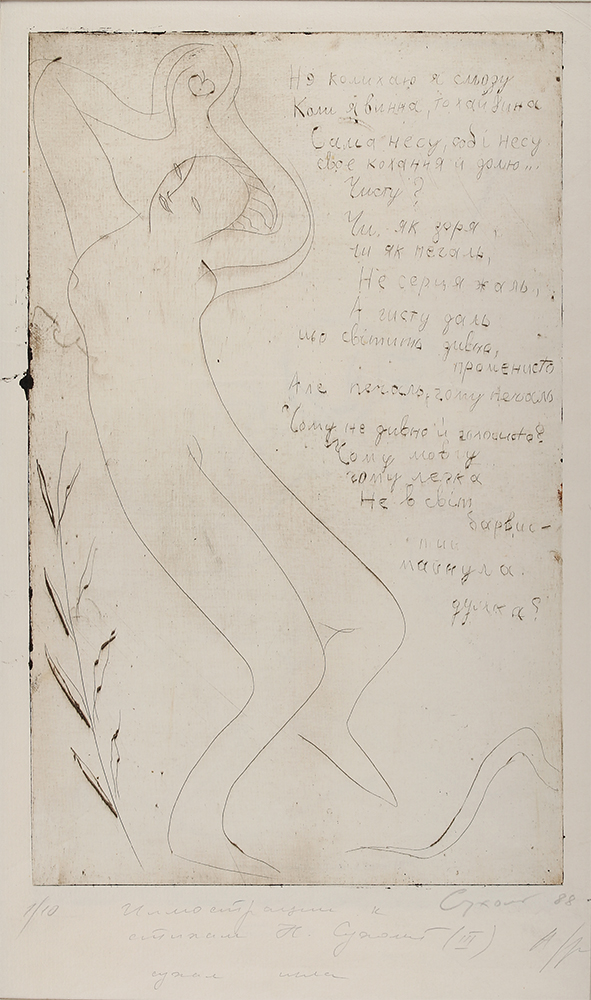 Не колихаю я сльозу
Коли я винна, то хай вина
Сама несу, собі несу
своє кохання й долю...
Чисту?
Чи, як зоря,
чи як печаль,
Не серця жаль,
А чисту даль
що світить дивно,
променисто
Але печаль, чому печаль
Чому не дивно й голосисто?
Чому мовчу
чому легка
Не в світ
барвис-
тий
майнула
думка?
1/10 Иллюстрации к Сухолит 88
стихам Н. Сухолит (III) А/р
сухая игла